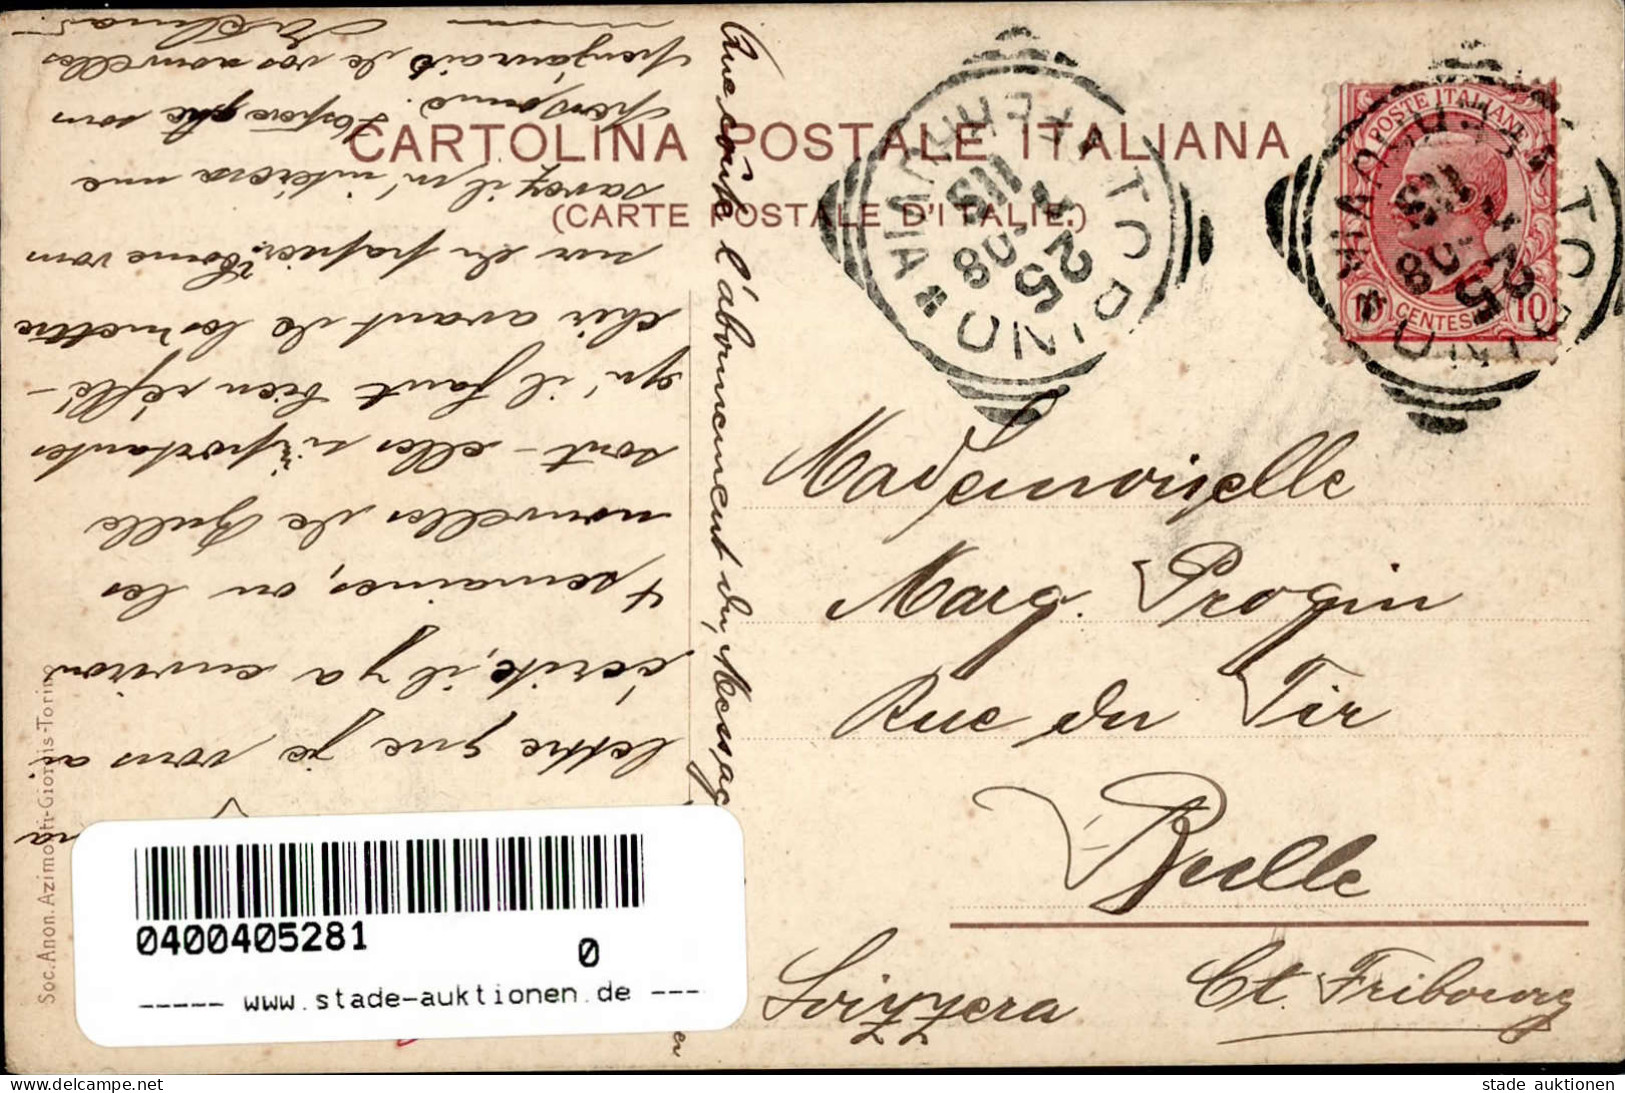 CARTOLINA POSTALE ITALIANA
(CARTE POSTALE D'ITALIE.)
POSTE ITALIANE
10 CENTESIMI 10
TORINO FERROVIA
25
08
11S
TORINO FERROVIA
25
08
11S
Mademoiselle
Marg. Progin
Rue du Tir
Bulle
Ct. Fribourg
Svizzera
lettre que je vous ai
écrite, il y a environ
4 semaines, ou les
nouvelles de Bulle
sont-elles si importantes
qu'il faut bien réflé-
chir avant de les mettre
sur du papier? Comme vous
savez il m'intéresse une
personne. J'espère que sous
de vos nouvelles
Que coûte l'abonnement du Messag
Soc. Anon. Azimonti-Giorgis-Torino
0400405281
0
----- www.stade-auktionen.de ----
www.delcampe.net
stade auktionen